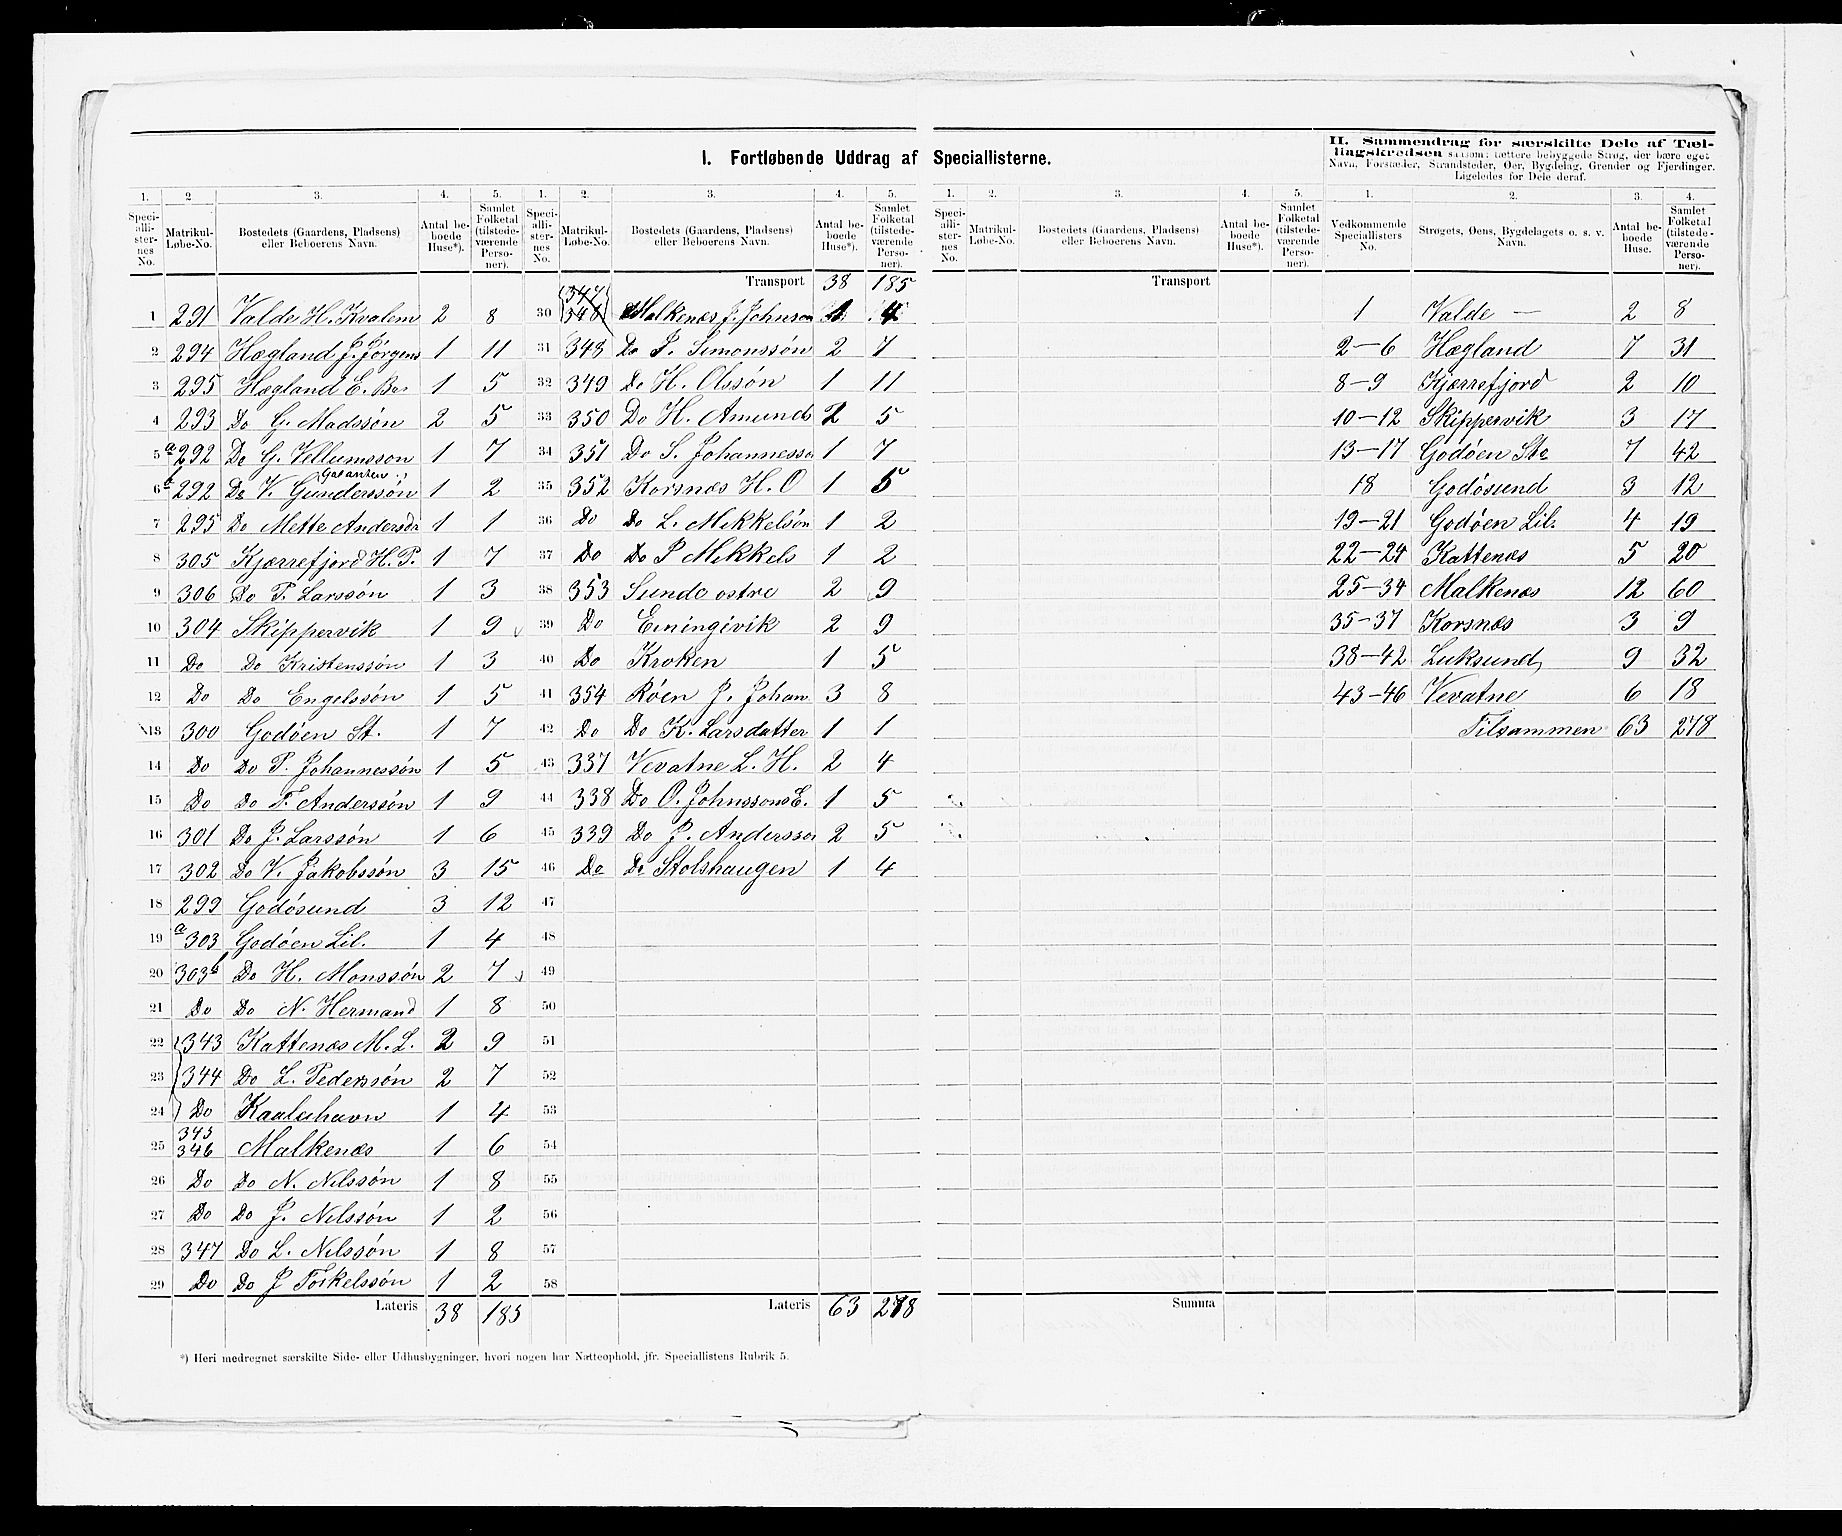 I. Fortløbende Uddrag af Speciallisterne.
II. Sammendrag for særskilte Dele af Tæl-
lingskredsen saasom: tættere bebyggede Strøg, der bære eget
Navn, Forstæder, Strandsteder, Øer, Bygdelag, Grender og Fjerdinger.
Ligeledes for Dele deraf.
1. 2. 3. 4. 5. 1. 2. 3. 4. 5. 1. 2. 3. 4. 5. 1. 2. 3. 4.
Speciallisternes No. Matrikul-Løbe-No. Bostedets (Gaardens, Pladsens) eller Beboerens Navn. Antal beboede Huse*). Samlet Folketal (tilstedeværende Personer).
Speciallisternes No. Matrikul-Løbe-No. Bostedets (Gaardens, Pladsens) eller Beboerens Navn. Antal beboede Huse*). Samlet Folketal (tilstedeværende Personer).
Speciallisternes No. Matrikul-Løbe-No. Bostedets (Gaardens, Pladsens) eller Beboerens Navn. Antal beboede Huse*). Samlet Folketal (tilstedeværende Personer).
Vedkommende Speciallisters No. Strøgets, Øens, Bygdelagets o. s. v. Navn. Antal beboede Huse. Samlet Folketal (tilstedeværende Personer).
1 291 Valde H. Kvalem 2 8
2 294 Hægland J. Jørgens 1 11
3 295 Hægland E. Be. 1 5
4 293 Do G. Madssøn 2 5
5 a 292 Do G. Vellumsson 1 7
6 b 292 Do V. Gunderssøn 1 2
7 295 Do Mette Andersdr 1 1
8 305 Kjærrefjord H. P. 1 7
9 306 Do T. Larssøn 1 3
10 304 Skippervik 1 9
11 Do Do Kristenssøn 1 3
12 Do Do Engelssøn 1 5
13 300 Godøen St. 1 7
14 Do Do P. Johannessøn 1 5
15 Do Do T. Anderssøn 1 9
16 301 Do J. Larssøn 1 6
17 302 Do V. Jakobssøn 3 15
18 299 Godøsund 3 12
19 a 303 Godøen Lil. 1 4
20 303 b Do H. Monssøn 2 7
21 Do Do N. Hermand 1 8
22 343 Kattenæs M. L. 2 9
23 344 Do L. Pederssøn 2 7
24 Do Kaaluhavn 1 4
25 345 346 Malkenæs 1 6
26 Do Do N. Nilssøn 1 8
27 Do Do J. Nilssøn 1 2
28 347 Do L. Nilssøn 1 8
29 Do Do J Torkelssøn 1 2
Lateris 38 185
Transport 38 185
30 347 348 Malkenæs J. Johnson 1 4
31 348 Do P. Simonssøn 2 7
32 349 Do H. Olssøn 1 11
33 350 Do H. Amunds 2 5
34 351 Do S. Johannesso 1 7
35 352 Korsnæs H. O 1 5
36 Do Do L. Mikkelsøn 1 2
37 Do Do P Mikkels 1 2
38 353 Sunde østre 2 9
39 Do Emingivik 2 9
40 Do Kroken 1 5
41 354 Røen J. Johan 3 8
42 Do Do K. Larsdatter 1 1
43 337 Vevatne L. H. 2 4
44 338 Do O. Johnssons E. 1 5
45 339 Do J. Andersson 2 5
46 Do Do Stolshaugen 1 4
47
48
49
50
51
52
53
54
55
56
57
58
Lateris 63 278
Transport
Summa
1 Valde — 2 8
2-6 Hægland 7 31
8-9 Kjærrefjord 2 10
10-12 Skippervik 3 17
13-17 Godøen St 7 42
18 Godøsund 3 12
19-21 Godøen Lil. 4 19
22-24 Kattenæs 5 20
25-34 Malkenæs 12 60
35-37 Korsnæs 3 9
38-42 Luksund 9 32
43-46 Vevatne 6 18
Tilsammen 63 278
*) Heri medregnet særskilte Side- eller Udhusbygninger, hvori nogen har Natteophold, jfr. Speciallistens Rubrik 5.